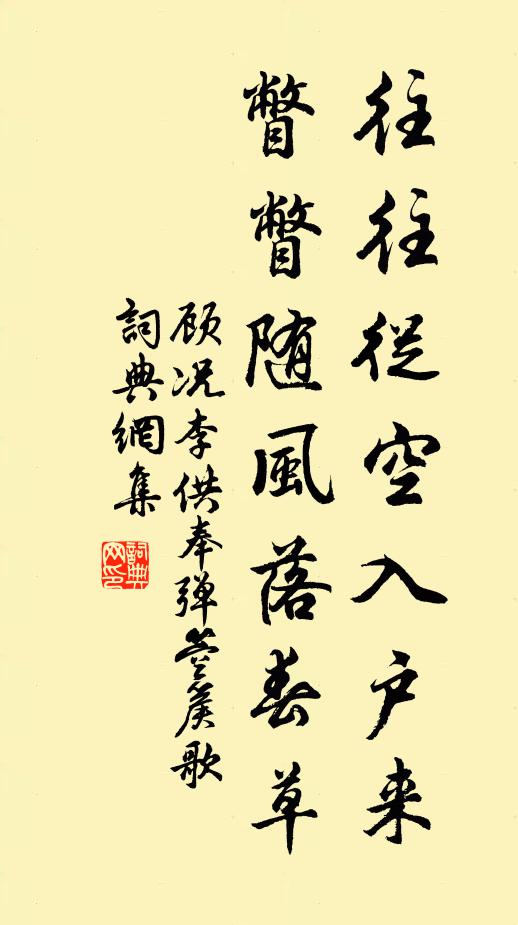 往往從空入户来
瞥瞥随風落春草
顾况李供奉弹箜篌歌
詞典網集
詞典网印